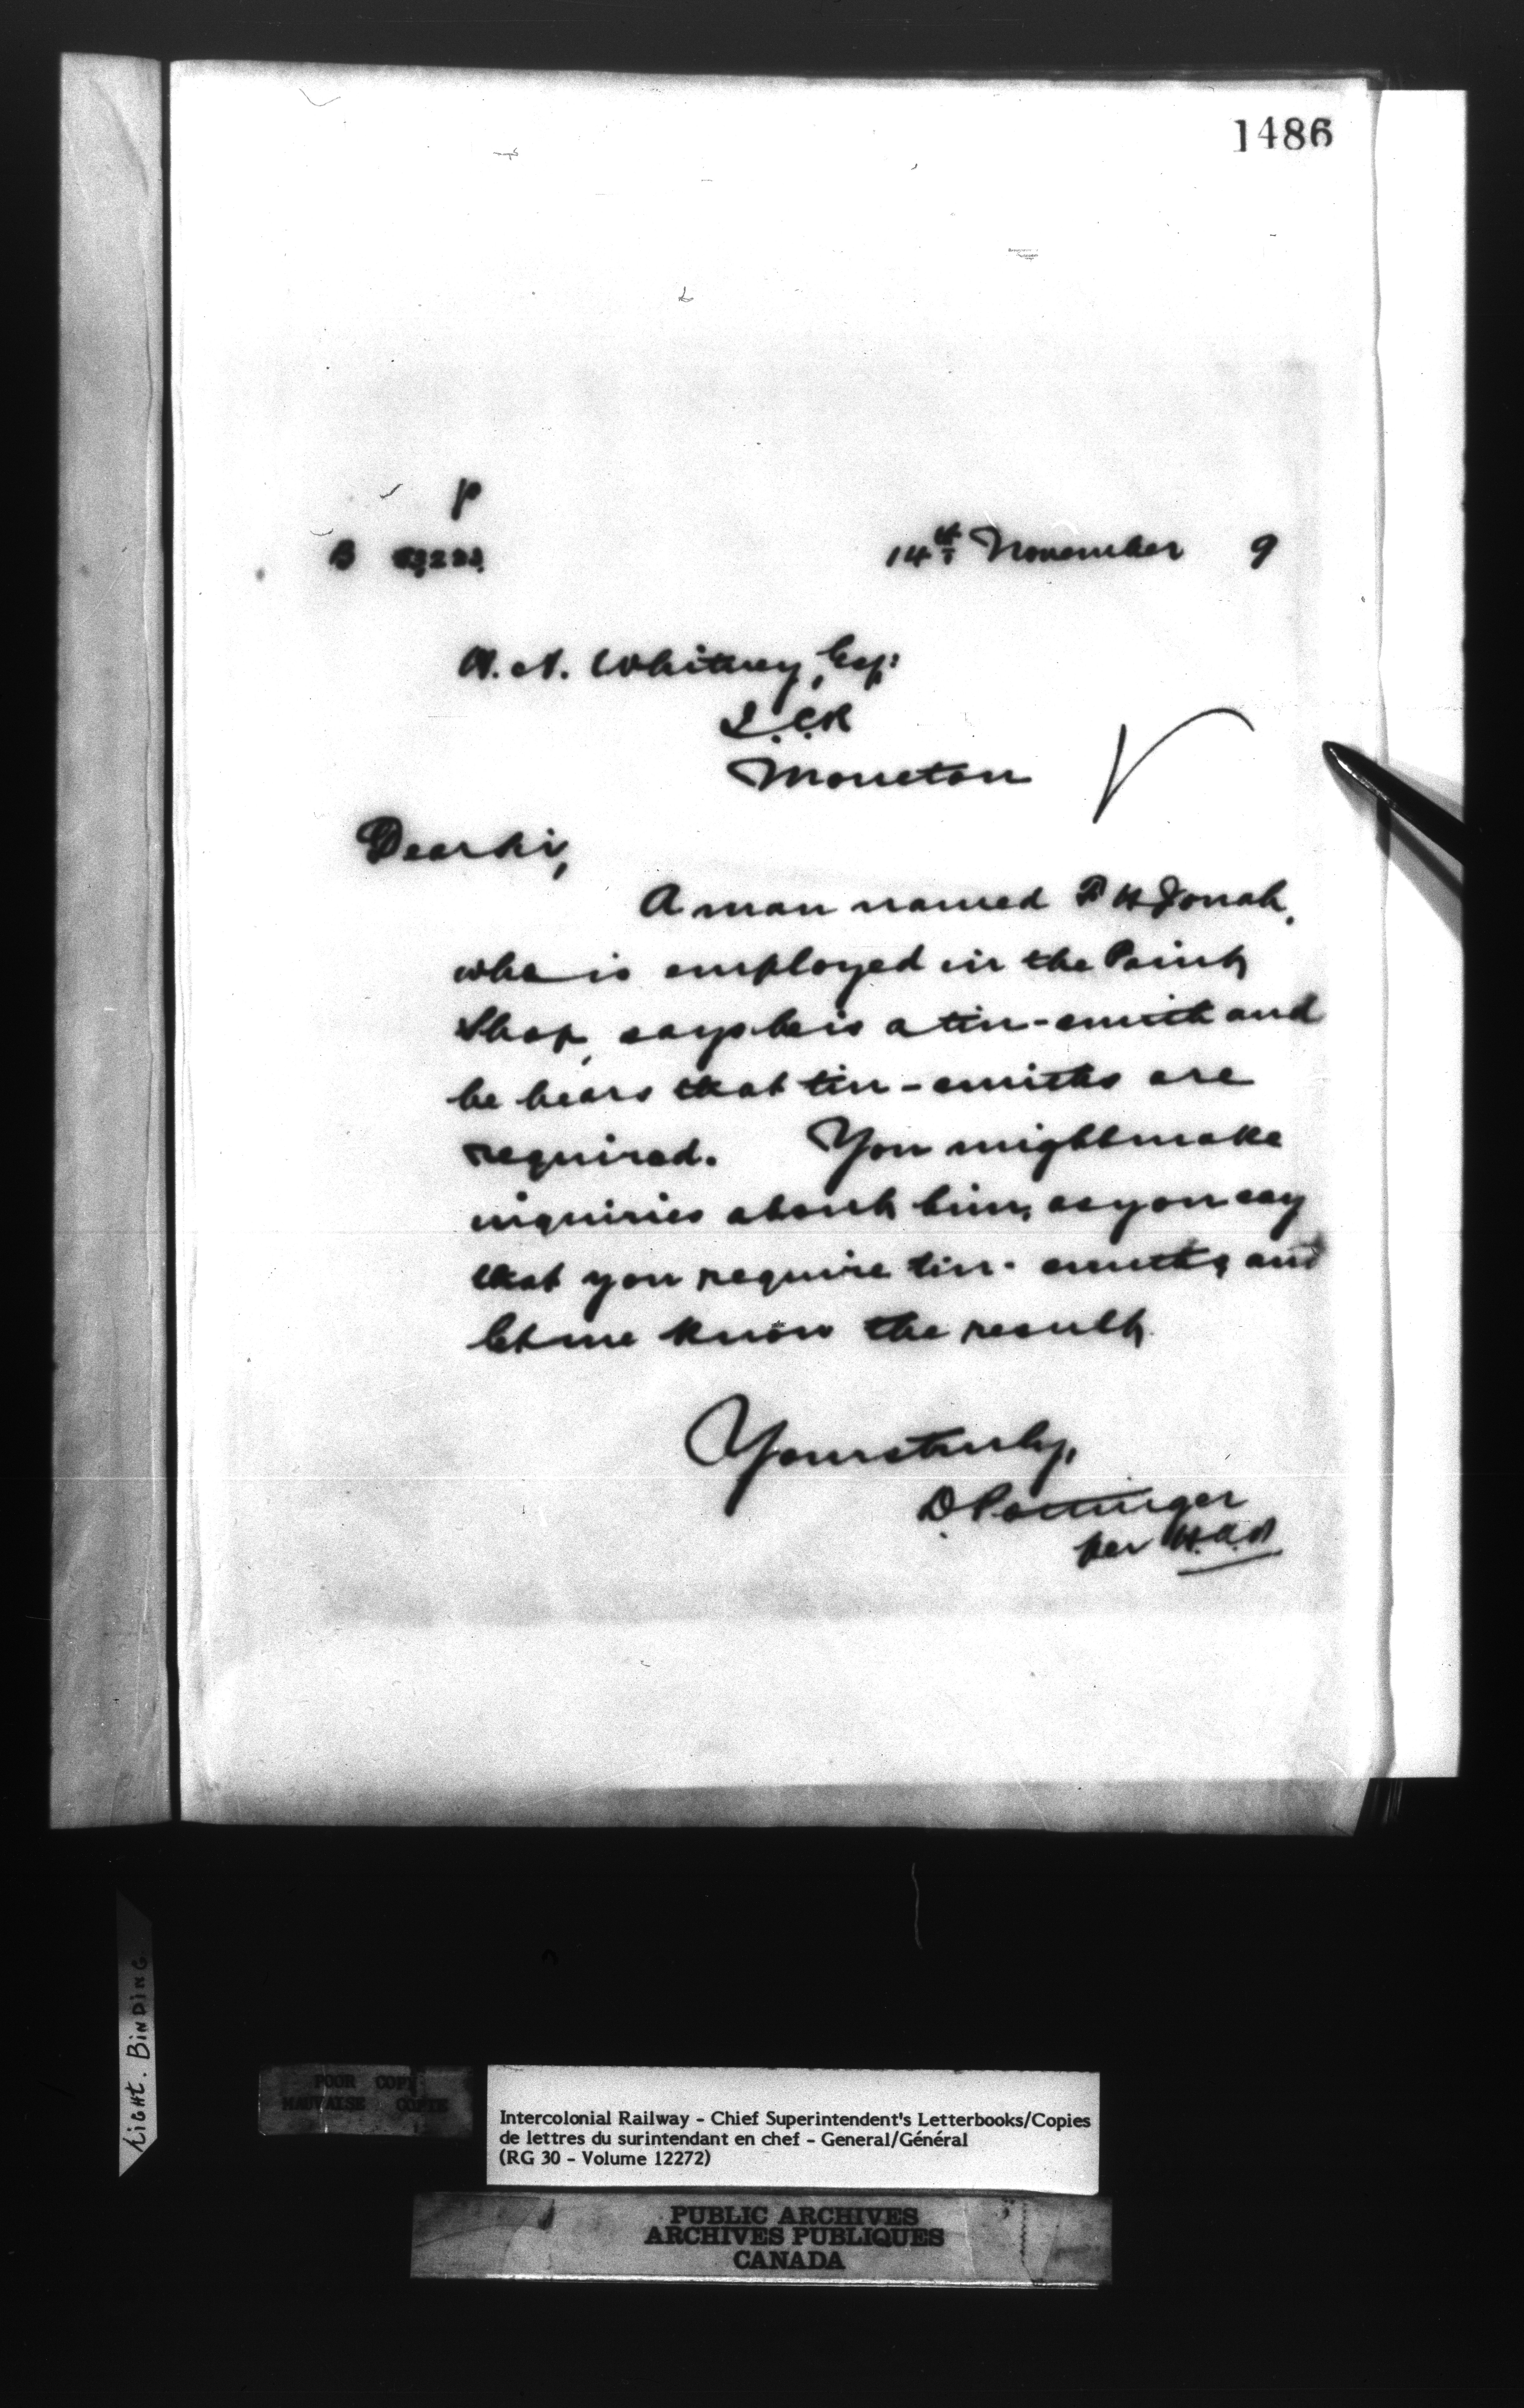 1486
P
B
14th November 9
H. A. Whitney, Esq:
I.C.R
Moncton
Dear Sir,
A man named H Jonah,
who is employed in the Paint
Shop, says he is a tin-smith and
he hears that tin-smiths are
required. You might make
inquiries about him, as you say
that you require tin-smiths, and
let me know the result.
Yours truly,
D. Pottinger
per H.A.
LIGHT. BINDING
POOR COPY
MAUVAISE COPIE
Intercolonial Railway - Chief Superintendent's Letterbooks/Copies
de lettres du surintendant en chef - General/Général
(RG 30 - Volume 12272)
PUBLIC ARCHIVES
ARCHIVES PUBLIQUES
CANADA